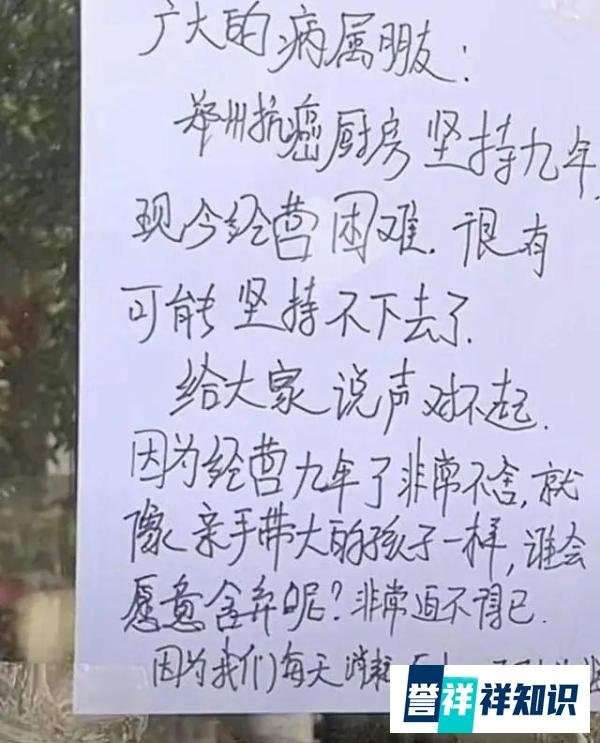 广大的病属朋友:
郑州抗癌厨房坚持九年,
现今经营困难.很有
可能坚持不下去了.
给大家说声对不起.
因为经营九年了非常不舍,就
像亲手带大的孩子一样,谁会
愿意舍弃呢?非常迫不得已.
因为我们每天消耗
誉祥祥知识